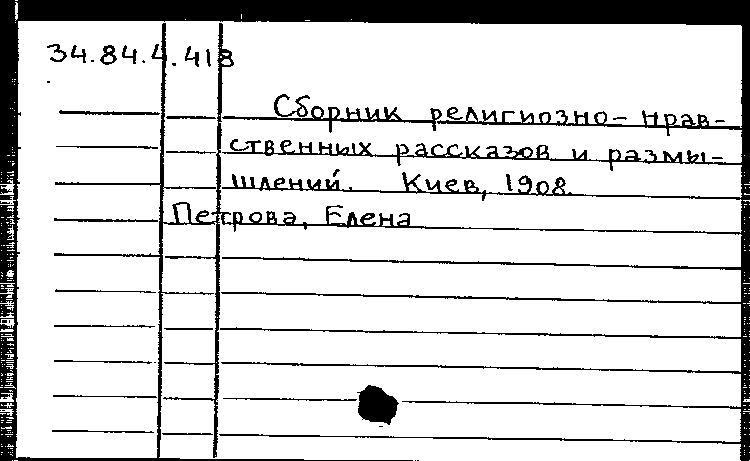 34.84.4.418
Сборник религиозно-нрав-
ственных рассказов и размы-
шлений. Киев, 1908.
Петрова, Елена